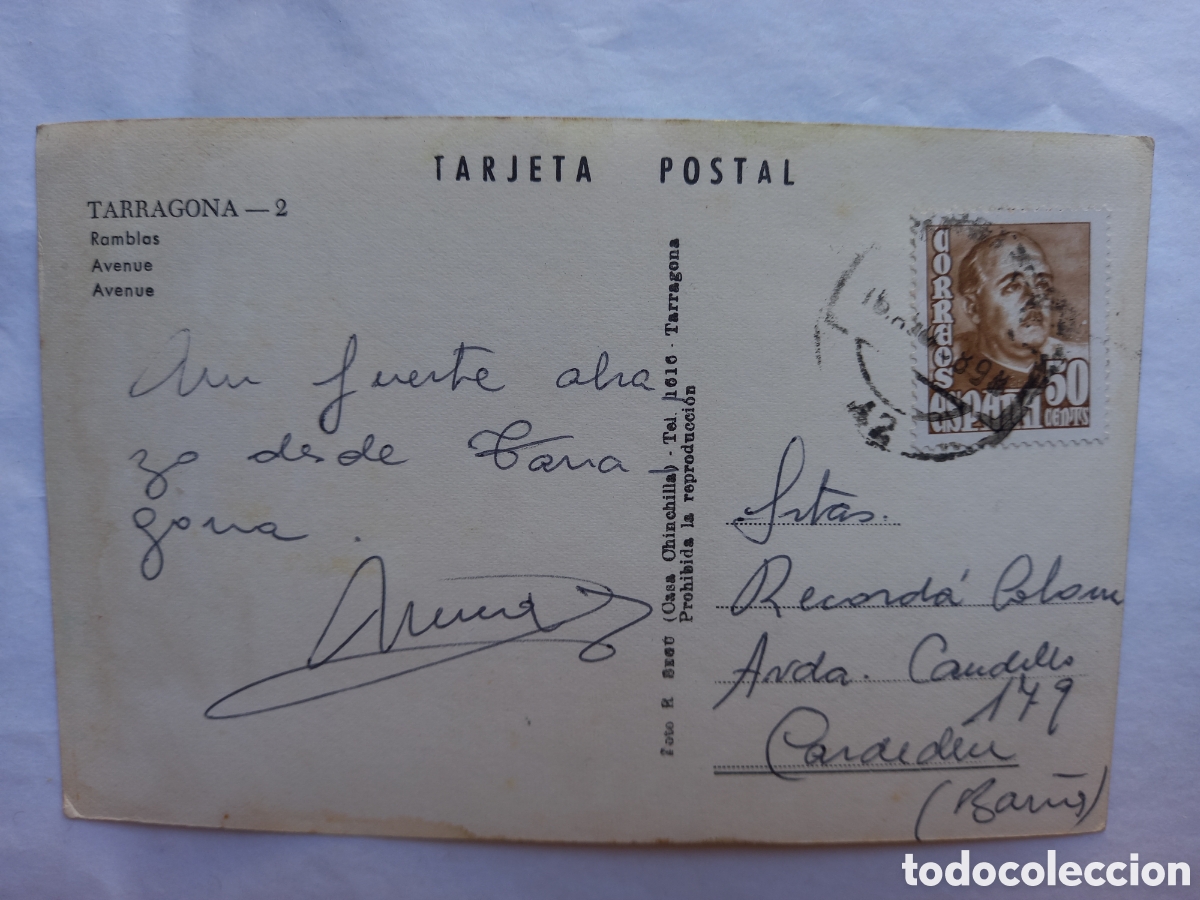 TARJETA POSTAL
TARRAGONA — 2
Ramblas
Avenue
Avenue
Un fuerte abra
zo desde Tarra-
gona.
Foto R SEGÚ (Casa Chinchilla) - Tel. 1616 - Tarragona
Prohibida la reproducción
CORREOS
ESPAÑA
50
CENTS
Srtas.
Recordá Colom
Avda. Caudillo
179
Cardedeu
(Barna)
todocoleccion